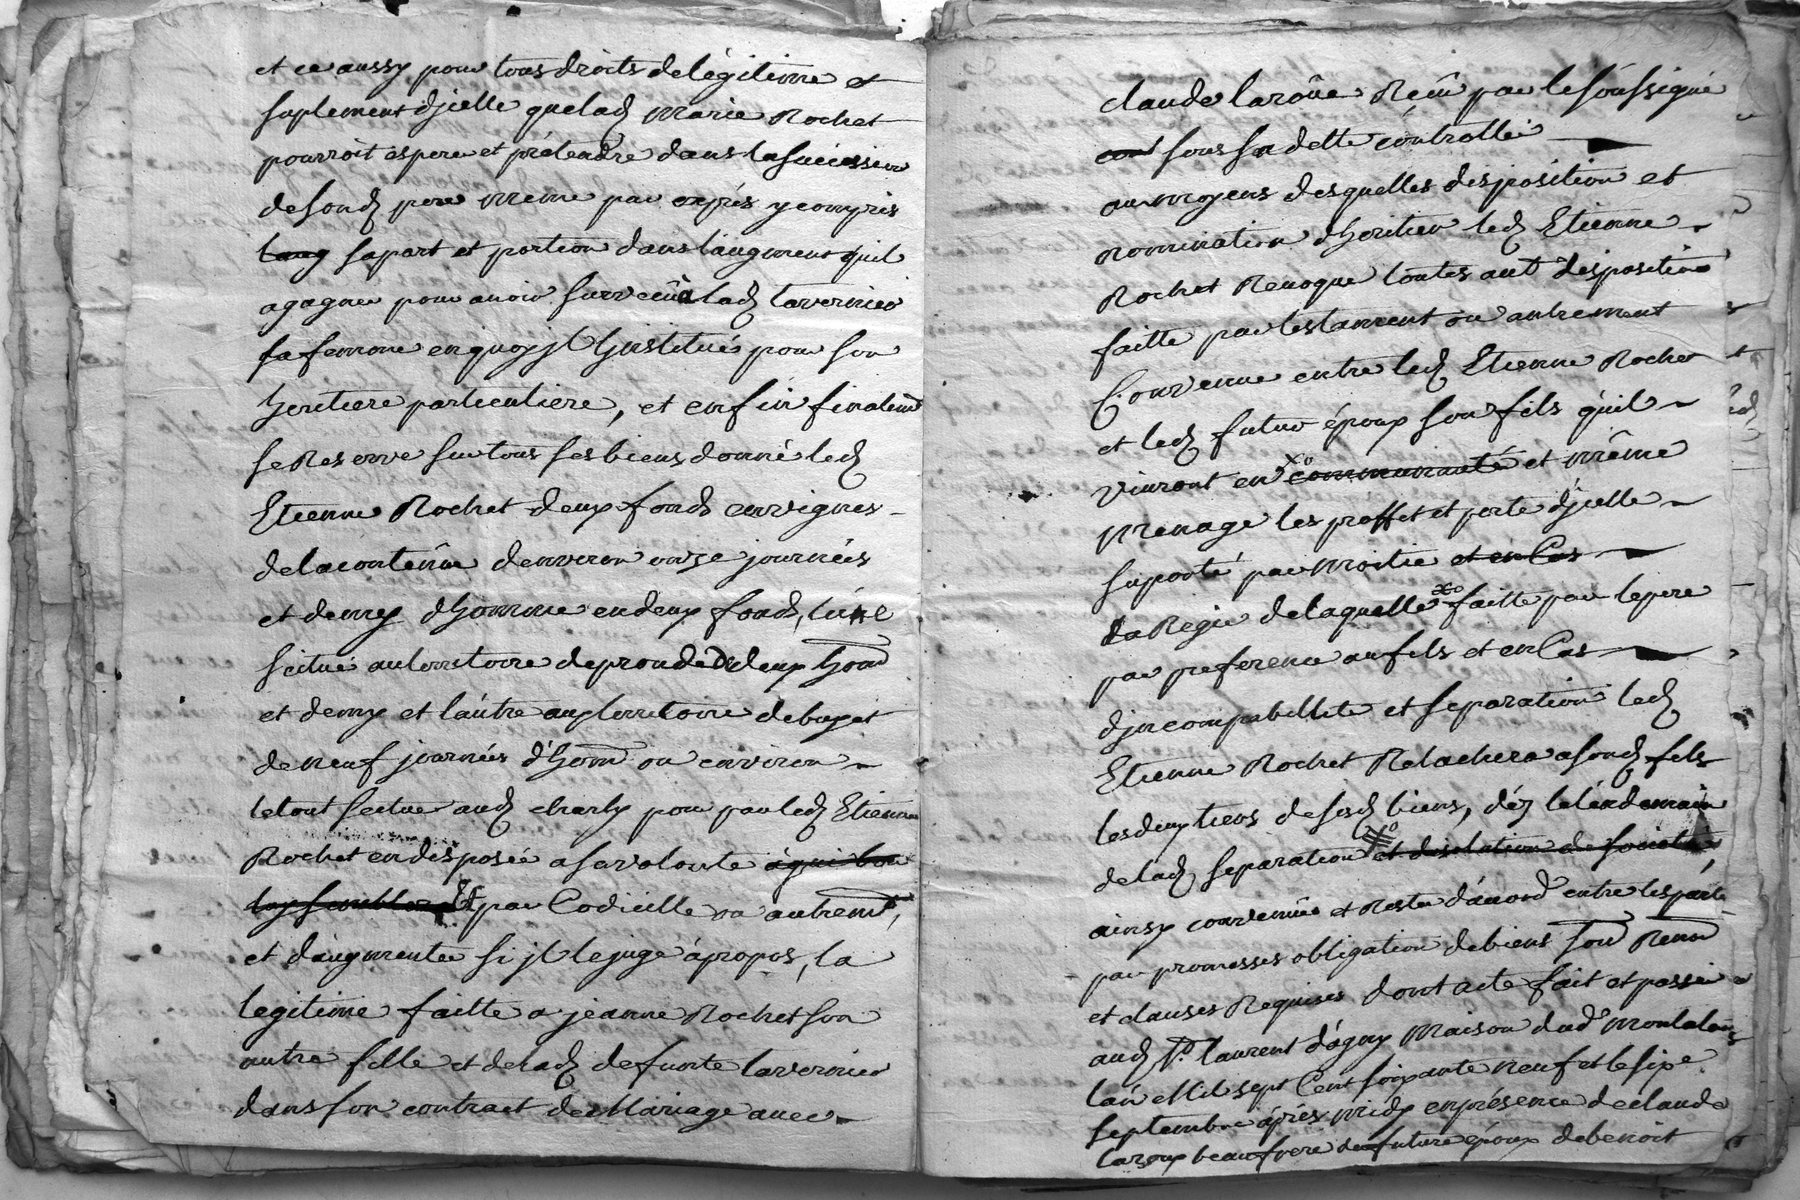 et ce aussy pour tous droits de légitime et
suplement djcelle que lad Marie Rochet
pourroit esperer et prétendre dans la succession
de sond pere meme par exprés y compris
sa part et portion dans l'augment quil
a gagner pour avoir survecû a lad tavernier
sa femme en quoy jl hjnstitué pour son
heritiere particuliere, et enfin finalemt
se Reserve sur tous ses biens donné led
Etienne Rochet deux fonds en vignes
de la contenüe denviron onze journées
et demy dhomme en deux fonds, lune
scitué au territoire de prondede deux hom
et demy et l'autre au territoire de buyet
de neuf journées d'hom ou environ
le tout scitue aud charly pour par led Etienne
Rochet en disposée a sa volonte a qui bon
luy semblera et par Codicille ou autremt,
et d'augmenter si jl le juge ápropos, la
legitime faitte a jeanne Rochet son
autre fille et de lad defunte tavernier
dans son contract de Mariage avec
claude laroüe Reçû par le soussigné
sous sa dette controllé
au moyens desquelles disposition et
nomination dheritier led Etienne
Rochet Revoque toutes aut disposition
faitte par testament ou autrement
Convenue entre led Etienne Rochet
et led futur époux son fils quil
vivront en communauté et même
menage les proffit et perte djcelle
suporté par moitie et en Cas
La Regie de laquelle faitte par le pere
par preference au fils et en Cas
djncompabillite et separation led
Etienne Rochet Relachera a sond fils
les deux tiers de sesd biens, déz le léndemain
de lad separation et disolution de societé
ainsy convenüe et Resté d'acord entre les parte
par promesses obligation de biens soum Renon
et clauses Requises dont acte fait et passé
aud St. laurent d'ágny Maison dud
lan Mil sept Cent soixante neuf et le six
septembre áprés midy en présence de claude
laroux beaufrere du future époux de benoit